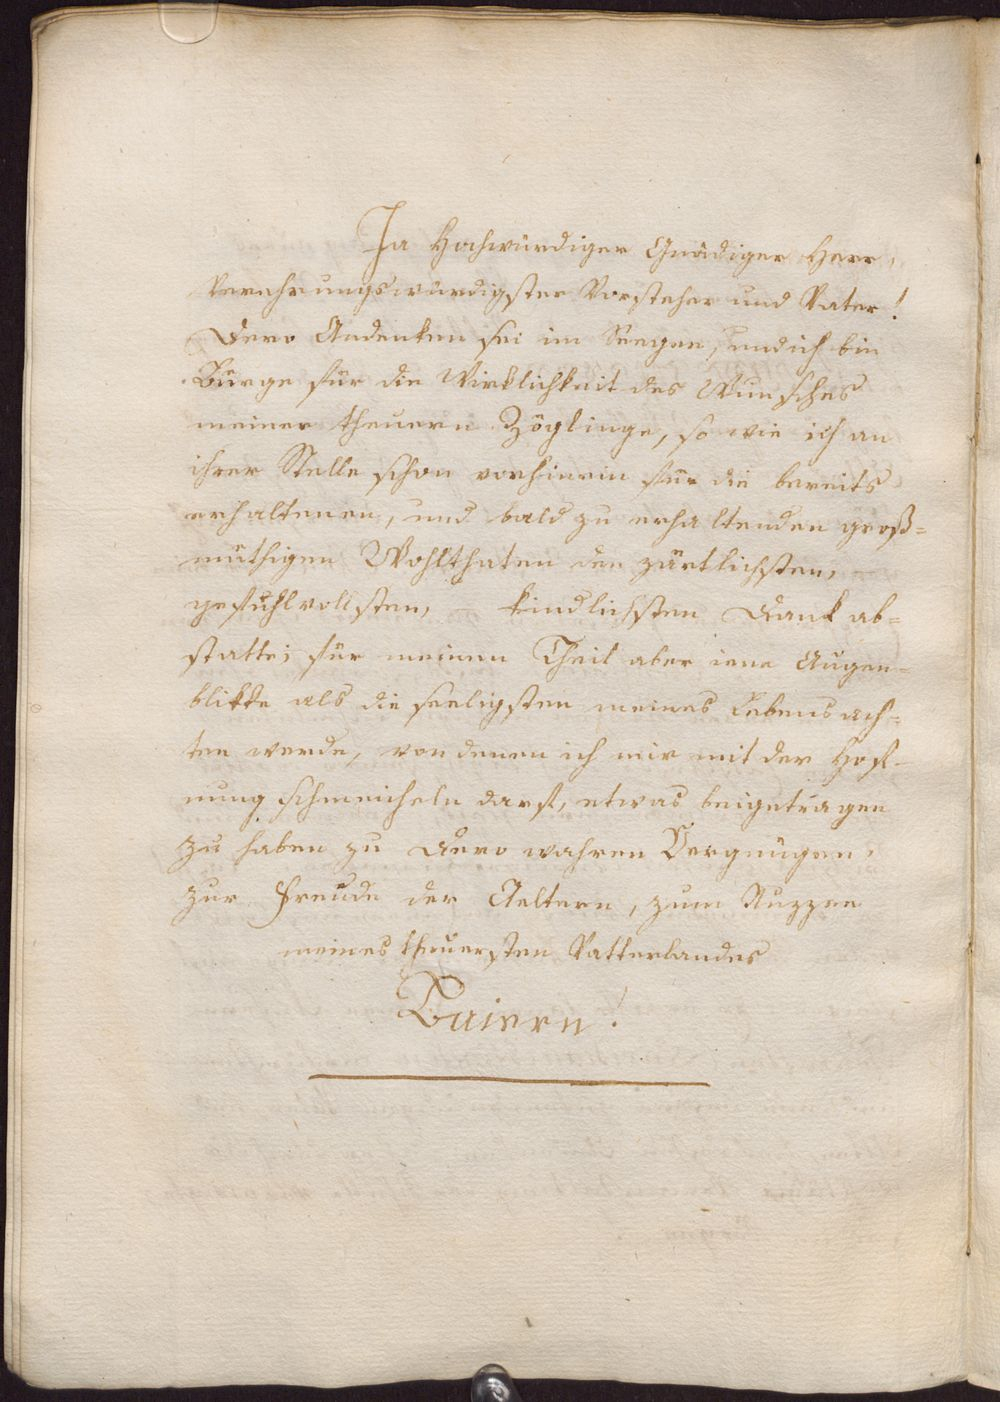 Ja Hochwürdiger Gnädiger Herr,
Verehrungswürdigster Vorsteher und Vater!
Dero Andenken sei im Seegen, und ich bin
Bürge für die Wirklichkeit des Wunsches
meiner theuern Zöglinge, so wie ich an
ihrer Stelle schon vorhinein für die bereits
erhaltenen, und bald zu erhaltenden groß=
müthigen Wohlthaten den zärtlichsten,
gefühlvollsten, kindlichsten Dank ab=
statte; für meinen Theil aber iene Augen=
blikke als die seeligsten meines Lebens ach=
ten werde, von denen ich mir mit der Hof=
nung schmeicheln darf, etwas beigetragen
zu haben zu Dero wahren Vergnügen,
zur Freude der Aeltern, zum Nuzzen
meines theuersten Vatterlandes
Baiern!